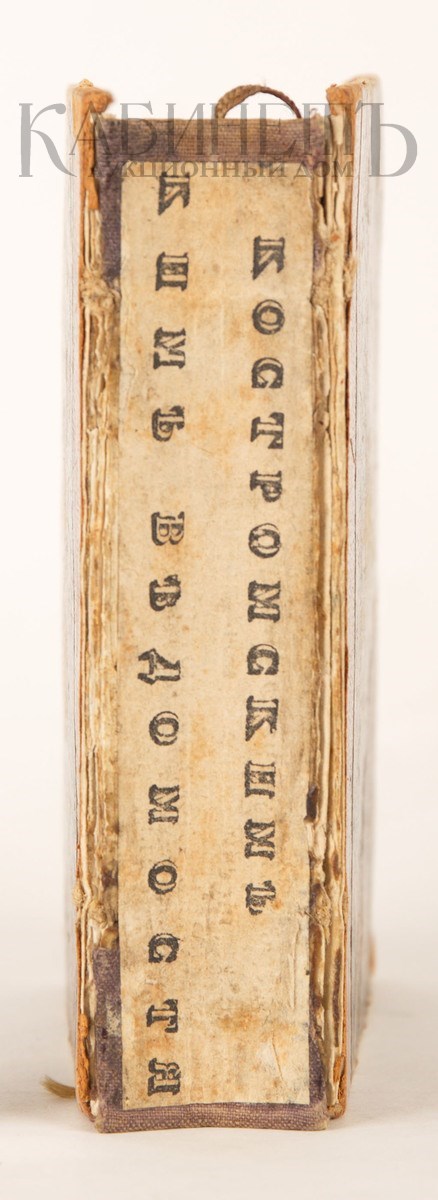 КАБИНЕТЪ
АУКЦИОННЫЙ ДОМ
КОСТРОМСКИМЪ
КИМЪ ВѢДОМОСТЯ